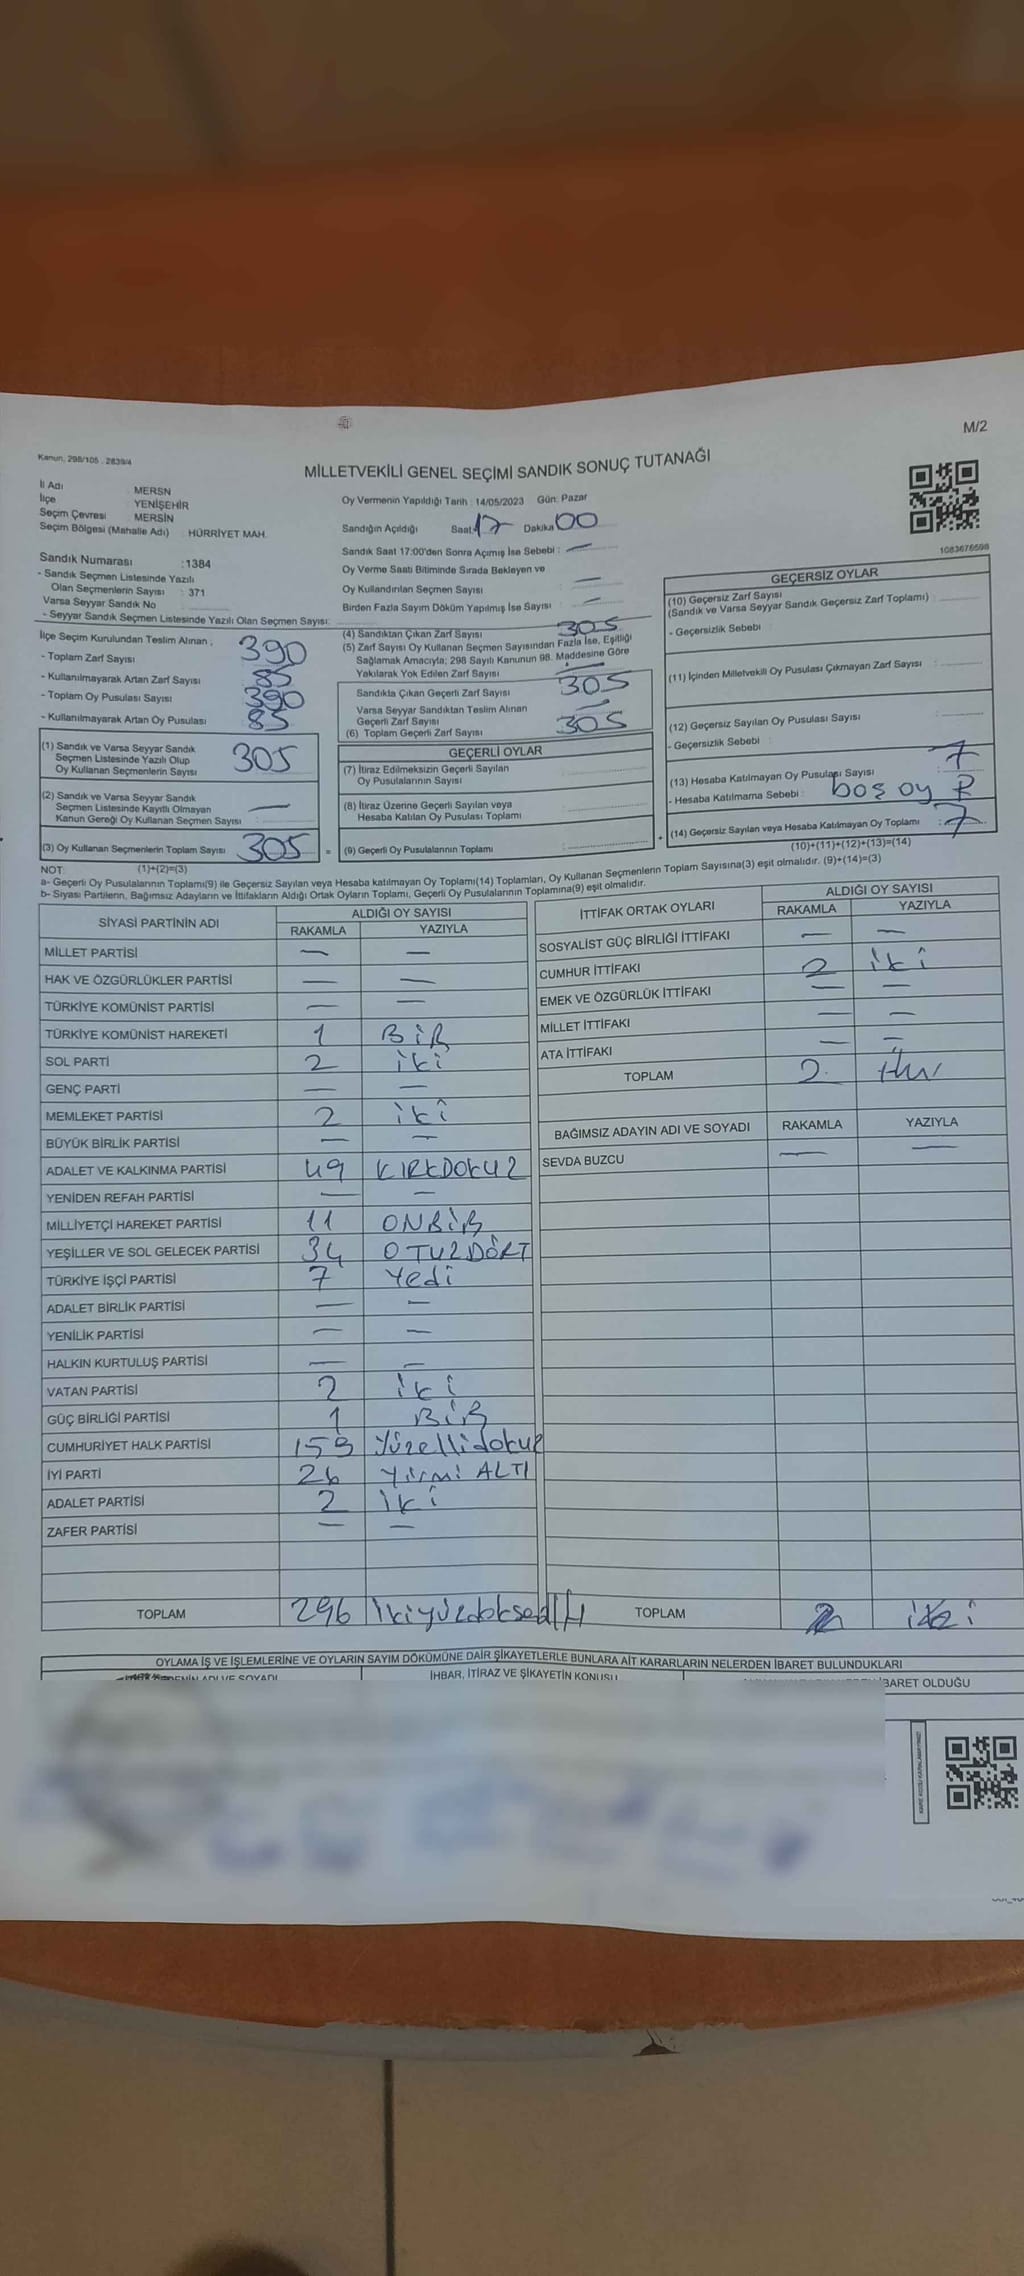 M/2
Kanun, 298/105 . 2839/4
MİLLETVEKİLİ GENEL SEÇİMİ SANDIK SONUÇ TUTANAĞI
İl Adı : MERSN
İlçe : YENİŞEHİR
Seçim Çevresi : MERSİN
Seçim Bölgesi (Mahalle Adı) : HÜRRİYET MAH.
Sandık Numarası : 1384
- Sandık Seçmen Listesinde Yazılı
Olan Seçmenlerin Sayısı : 371
Varsa Seyyar Sandık No
- Seyyar Sandık Seçmen Listesinde Yazılı Olan Seçmen Sayısı:
Oy Vermenin Yapıldığı Tarih : 14/05/2023 Gün: Pazar
Sandığın Açıldığı Saat 17 Dakika 00
Sandık Saat 17:00'den Sonra Açımış İse Sebebi : —
Oy Verme Saati Bitiminde Sırada Bekleyen ve
Oy Kullandırılan Seçmen Sayısı : —
Birden Fazla Sayım Döküm Yapılmış İse Sayısı : —
1083676598
İlçe Seçim Kurulundan Teslim Alınan ;
- Toplam Zarf Sayısı 390
- Kullanılmayarak Artan Zarf Sayısı : 85
- Toplam Oy Pusulası Sayısı 390
- Kullanılmayarak Artan Oy Pusulası : 85
(1) Sandık ve Varsa Seyyar Sandık
Seçmen Listesinde Yazılı Olup
Oy Kullanan Seçmenlerin Sayısı 305
(2) Sandık ve Varsa Seyyar Sandık
Seçmen Listesinde Kayıtlı Olmayan
Kanun Gereği Oy Kullanan Seçmen Sayısı : —
(3) Oy Kullanan Seçmenlerin Toplam Sayısı : 305 =
(4) Sandıktan Çıkan Zarf Sayısı 305
(5) Zarf Sayısı Oy Kullanan Seçmen Sayısından Fazla İse, Eşitliği
Sağlamak Amacıyla; 298 Sayılı Kanunun 98. Maddesine Göre
Yakılarak Yok Edilen Zarf Sayısı —
Sandıkla Çıkan Geçerli Zarf Sayısı 305
Varsa Seyyar Sandıktan Teslim Alınan
Geçerli Zarf Sayısı —
(6) Toplam Geçerli Zarf Sayısı : 305
GEÇERLİ OYLAR
(7) İtiraz Edilmeksizin Geçerli Sayılan
Oy Pusulalarının Sayısı
(8) İtiraz Üzerine Geçerli Sayılan veya
Hesaba Katılan Oy Pusulası Toplamı
(9) Geçerli Oy Pusulalarının Toplamı : +
GEÇERSİZ OYLAR
(10) Geçersiz Zarf Sayısı
(Sandık ve Varsa Seyyar Sandık Geçersiz Zarf Toplamı) :
- Geçersizlik Sebebi :
(11) İçinden Milletvekili Oy Pusulası Çıkmayan Zarf Sayısı :
(12) Geçersiz Sayılan Oy Pusulası Sayısı :
- Geçersizlik Sebebi :
(13) Hesaba Katılmayan Oy Pusulası Sayısı : 7
- Hesaba Katılmama Sebebi : boş oy
(14) Geçersiz Sayılan veya Hesaba Katılmayan Oy Toplamı : 7
(10)+(11)+(12)+(13)=(14)
NOT: (1)+(2)=(3)
a- Geçerli Oy Pusulalarının Toplamı(9) ile Geçersiz Sayılan veya Hesaba katılmayan Oy Toplamı(14) Toplamları, Oy Kullanan Seçmenlerin Toplam Sayısına(3) eşit olmalıdır. (9)+(14)=(3)
b- Siyasi Partilerin, Bağımsız Adayların ve İttifakların Aldığı Ortak Oyların Toplamı, Geçerli Oy Pusulalarının Toplamına(9) eşit olmalıdır.
SİYASİ PARTİNİN ADI ALDIĞI OY SAYISI
RAKAMLA YAZIYLA
MİLLET PARTİSİ — —
HAK VE ÖZGÜRLÜKLER PARTİSİ — —
TÜRKİYE KOMÜNİST PARTİSİ — —
TÜRKİYE KOMÜNİST HAREKETİ 1 BİR
SOL PARTİ 2 iki
GENÇ PARTİ — —
MEMLEKET PARTİSİ 2 iki
BÜYÜK BİRLİK PARTİSİ — —
ADALET VE KALKINMA PARTİSİ 49 KIRKDOKUZ
YENİDEN REFAH PARTİSİ — —
MİLLİYETÇİ HAREKET PARTİSİ 11 ONBİR
YEŞİLLER VE SOL GELECEK PARTİSİ 34 OTUZDÖRT
TÜRKİYE İŞÇİ PARTİSİ 7 Yedi
ADALET BİRLİK PARTİSİ — —
YENİLİK PARTİSİ — —
HALKIN KURTULUŞ PARTİSİ — —
VATAN PARTİSİ 2 iki
GÜÇ BİRLİĞİ PARTİSİ 1 BİR
CUMHURİYET HALK PARTİSİ 159 Yüzellidokuz
İYİ PARTİ 26 Yirmi ALTI
ADALET PARTİSİ 2 iki
ZAFER PARTİSİ — —
TOPLAM 296
İTTİFAK ORTAK OYLARI ALDIĞI OY SAYISI
RAKAMLA YAZIYLA
SOSYALİST GÜÇ BİRLİĞİ İTTİFAKI — —
CUMHUR İTTİFAKI 2 iki
EMEK VE ÖZGÜRLÜK İTTİFAKI — —
MİLLET İTTİFAKI — —
ATA İTTİFAKI — —
TOPLAM 2
BAĞIMSIZ ADAYIN ADI VE SOYADI RAKAMLA YAZIYLA
SEVDA BUZCU — —
TOPLAM 2
OYLAMA İŞ VE İŞLEMLERİNE VE OYLARIN SAYIM DÖKÜMÜNE DAİR ŞİKAYETLERLE BUNLARA AİT KARARLARIN NELERDEN İBARET BULUNDUKLARI
ADI VE SOYADI İHBAR, İTİRAZ VE ŞİKAYETİN KONUSU İBARET OLDUĞU